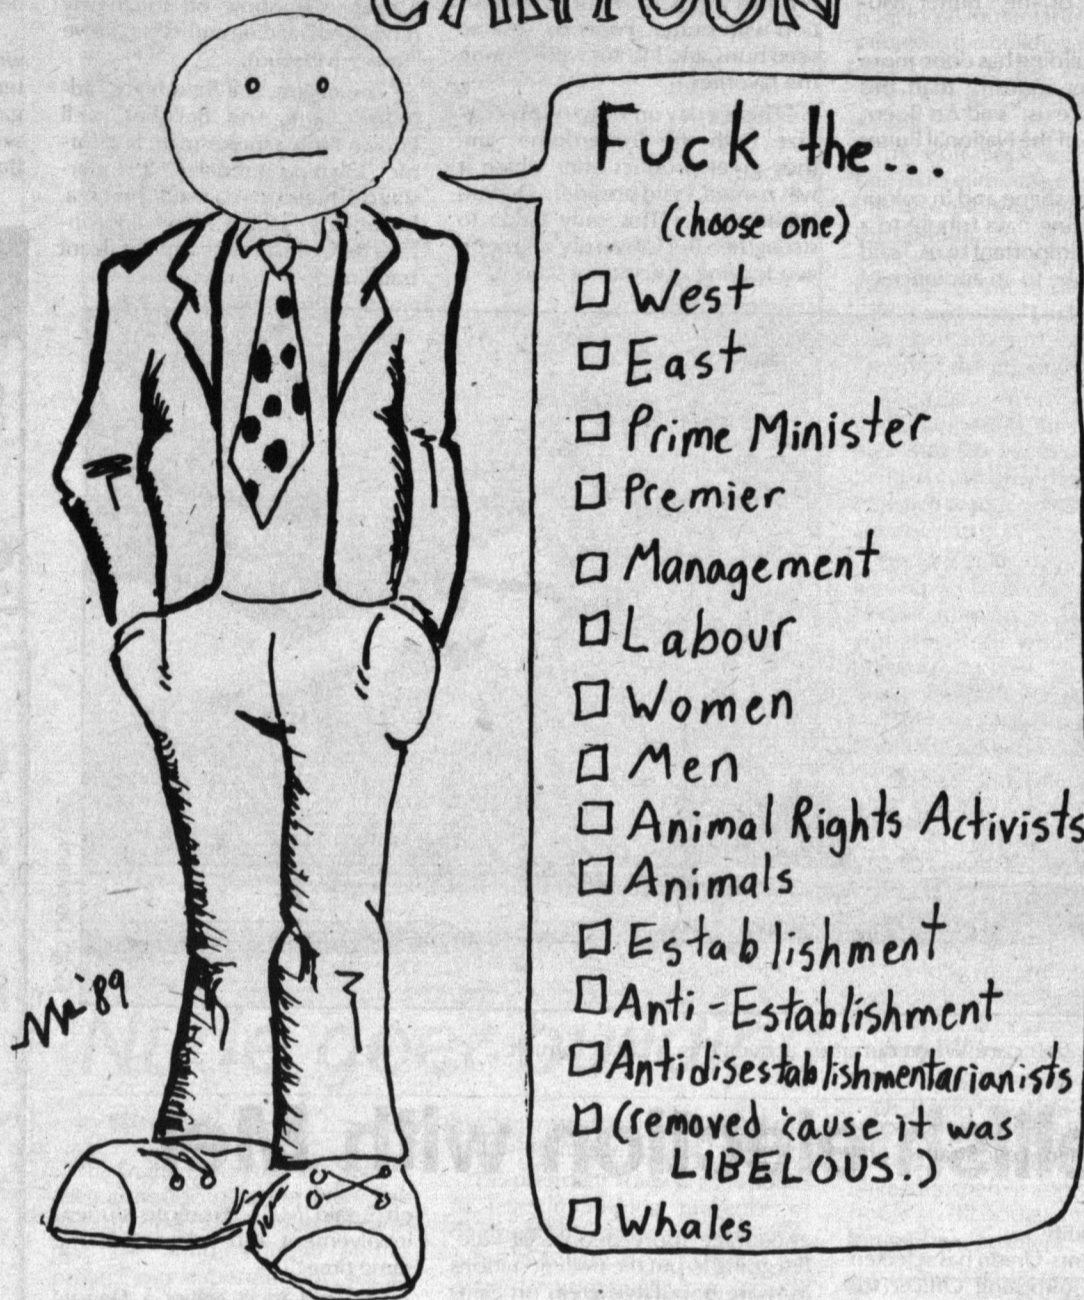 CARTOON
Fuck the...
(choose one)
West
East
Prime Minister
Premier
Management
Labour
Women
Men
Animal Rights Activists
Animals
Establishment
Anti-Establishment
Antidisestablishmentarianists
(removed 'cause it was
LIBELOUS.)
Whales
'89